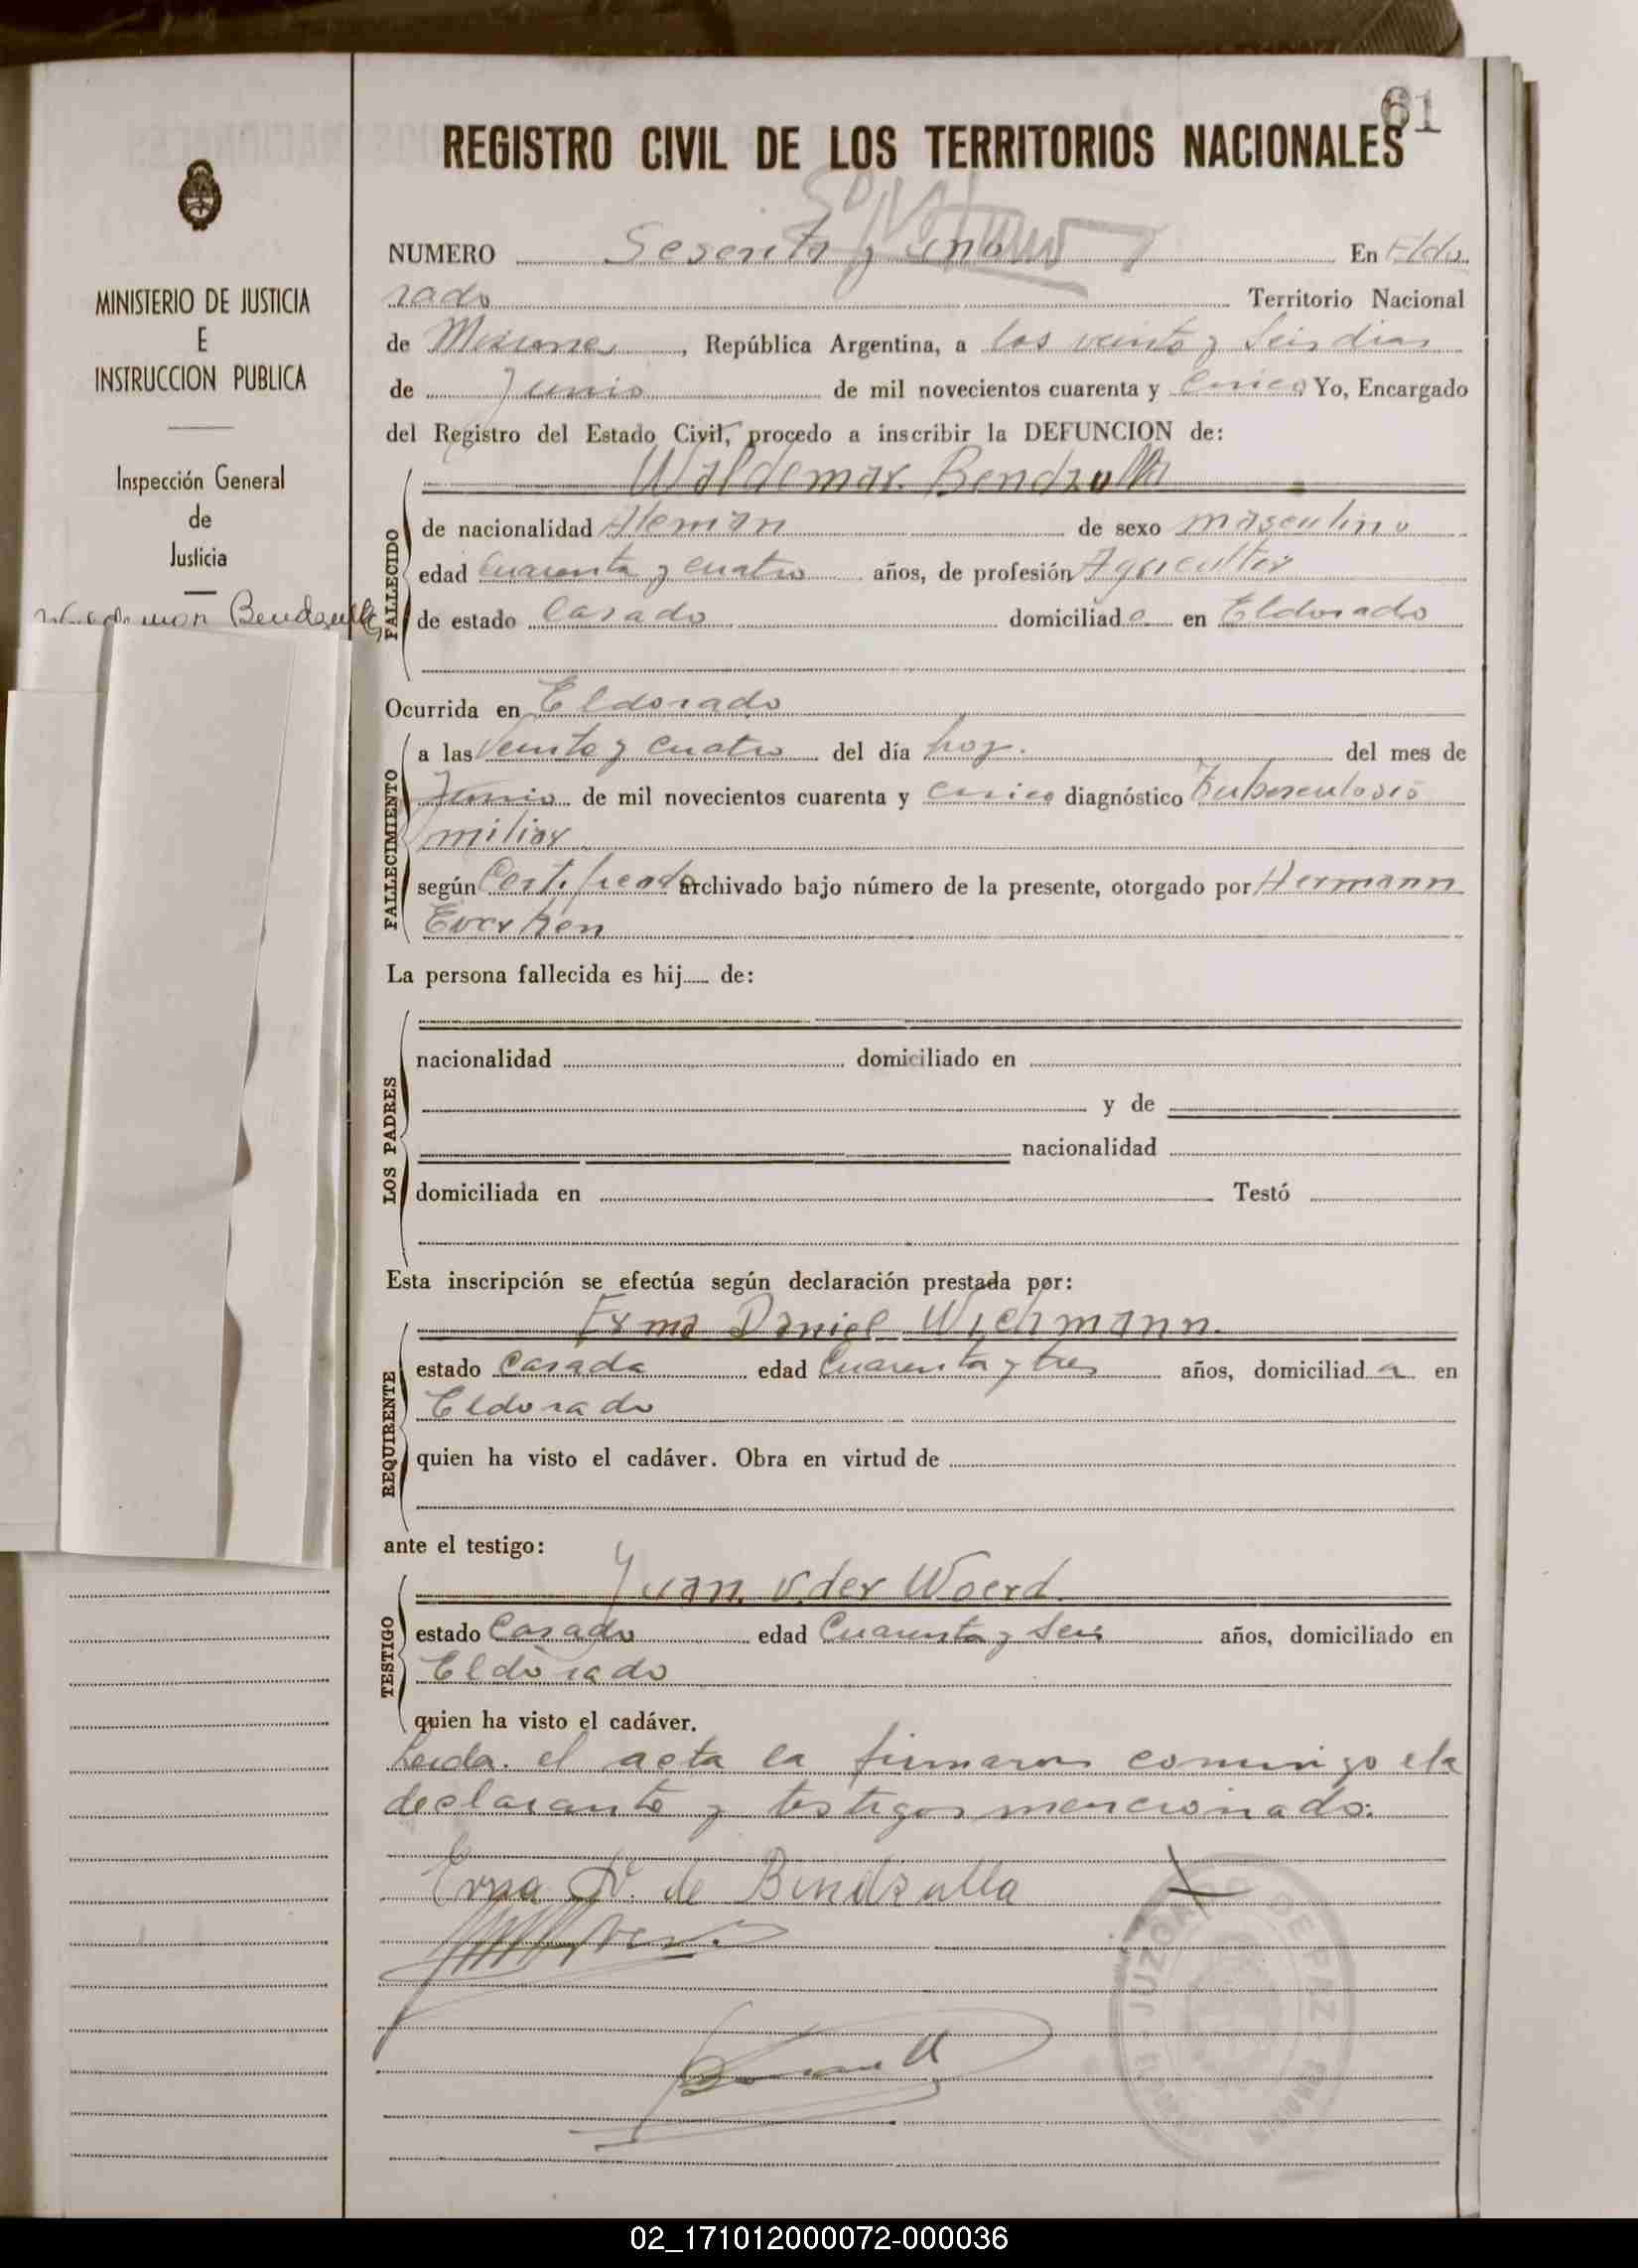 61
REGISTRO CIVIL DE LOS TERRITORIOS NACIONALES
MINISTERIO DE JUSTICIA
E
INSTRUCCION PUBLICA
Inspección General
de
Justicia
Bendzulla
NUMERO Sesenta y uno En Eldo
rado Territorio Nacional
de Misiones, República Argentina, a los veinte y seis dias
de Junio de mil novecientos cuarenta y cinco Yo, Encargado
del Registro del Estado Civil, procedo a inscribir la DEFUNCION de:
Waldemar Bendzulla
FALLECIDO
de nacionalidad Aleman de sexo masculino
edad Cuarenta y cuatro años, de profesión Agricultor
de estado Casado domiciliado en Eldorado
Ocurrida en Eldorado
FALLECIMIENTO
a las Veinte y cuatro del día hoy. del mes de
Junio de mil novecientos cuarenta y cinco diagnóstico Tuberculosis
miliar
según Certificado archivado bajo número de la presente, otorgado por Hermann
La persona fallecida es hij de:
LOS PADRES
nacionalidad domiciliado en
y de
nacionalidad
domiciliada en Testó
Esta inscripción se efectúa según declaración prestada por:
Erma Daniel Wichmann.
REQUIRENTE
estado Casada edad Cuarenta y tres años, domiciliada en
Eldorado
quien ha visto el cadáver. Obra en virtud de
ante el testigo:
Juan v. der Woerd
TESTIGO
estado Casado edad Cuarenta y seis años, domiciliado en
Eldorado
quien ha visto el cadáver.
Leida el acta la firmaron conmigo ela
declarante y testigos mencionado.
Erna D. de Bendzulla
JUZGADO DE PAZ
02_171012000072-000036